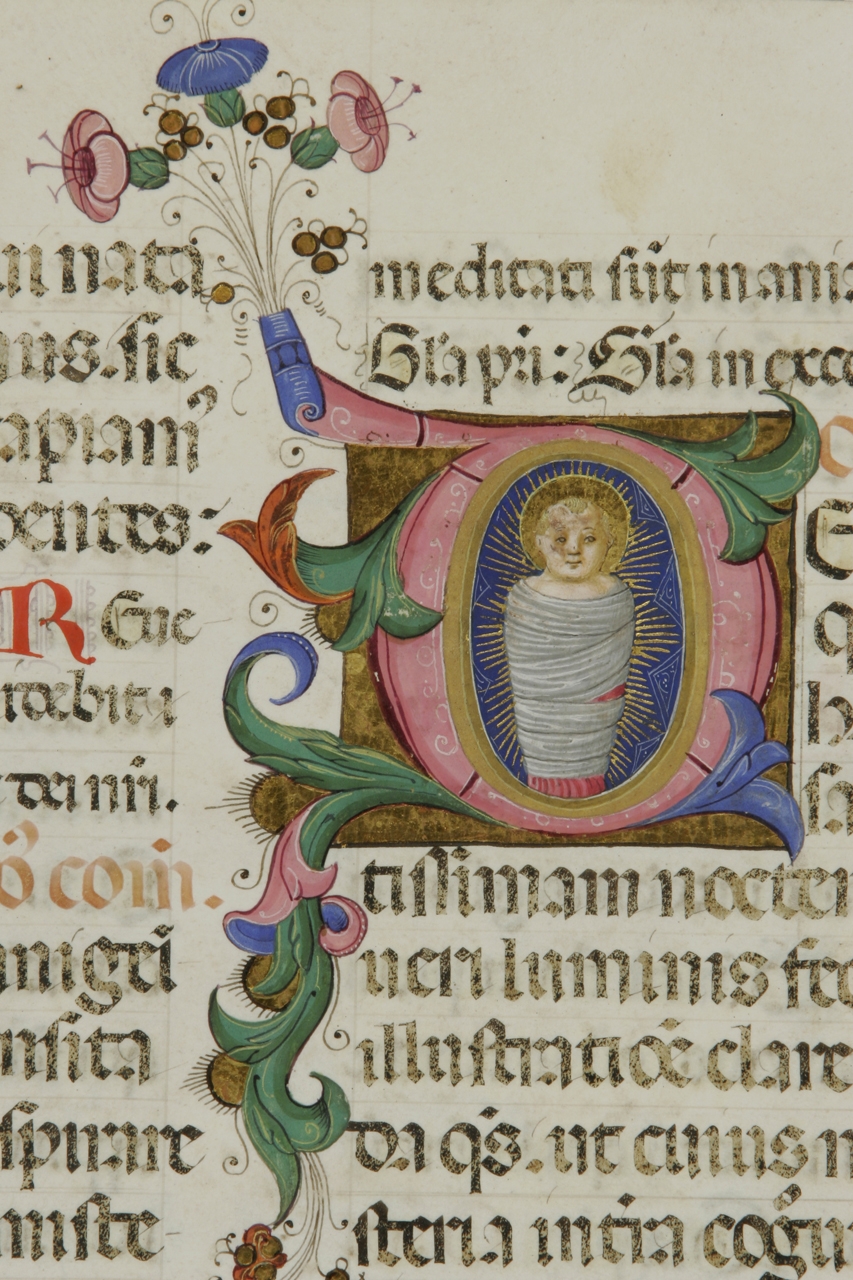 nata
us. sic
apiam⁹
dentes:
R Eue
debita
dei nr̄i.
com̄.
nigeī
nsita
spirare
miste
meditati sūt inani
Gl'a pr̄i: Gl'a in exce
D
E
q
h
sa
tissimam noctem
ueri luminis fec
illustratiōe clare
da qs̄. ut cuius m
steria in tr̄a cogu